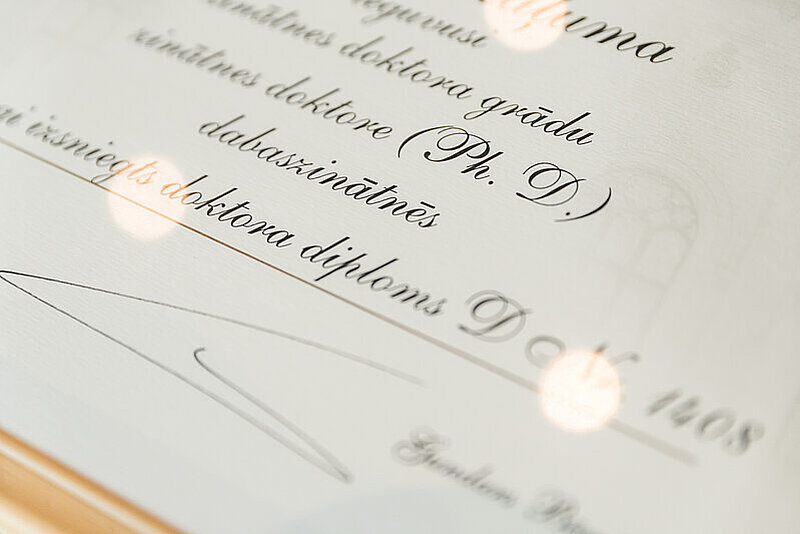 ieguvusi
zinātnes doktora grādu
zinātnes doktore (Ph. D.)
dabaszinātnēs
izsniegts doktora diploms D Nr. 1408